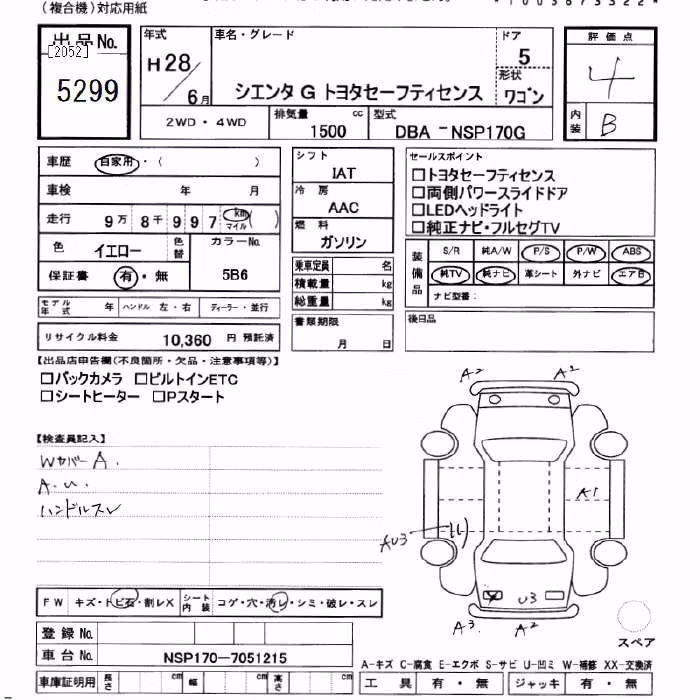 (複合機)対応用紙
出品No.
[2052]
5299
年式
H28
6月
車名・グレード
シエンタ G トヨタセーフティセンス
ドア
5
形状
ワゴン
評価点
4
内装
B
2WD・4WD
排気量
1500
cc
型式
DBA-NSP170G
車歴 自家用・( )
車検 年 月
走行 9万 8千 9 9 7 km マイル ( )
色 イエロー 色替
カラーNo.
5B6
保証書 有・無
モデル年式 年
ハンドル 左・右
ディーラー・並行
リサイクル料金 10,360 円 預託済
シフト
IAT
冷房
AAC
燃料
ガソリン
乗車定員 名
積載量 kg
総重量 kg
書類期限
月 日
セールスポイント
□トヨタセーフティセンス
□両側パワースライドドア
□LEDヘッドライト
□純正ナビ・フルセグTV
装備品
S/R 純A/W P/S P/W ABS
純TV 純ナビ 革シート 外ナビ エアB
ナビ型番:
後日品
【出品店申告欄(不良箇所・欠品・注意事項等)】
□バックカメラ □ビルトインETC
□シートヒーター □Pスタート
【検査員記入】
Wカバー A.
A.U.
ハンドルスレ
A2 A2
A1
AU3
U3
A3 A2
スペア
FW キズ・トビ石・割レX
シート内装 コゲ・穴・汚レ・シミ・破レ・スレ
登録No.
車台No. NSP170-7051215
車庫証明用 長さ cm 幅 cm 高さ cm
A-キズ C-腐食 E-エクボ S-サビ U-凹ミ W-補修 XX-交換済
工具 有・無 ジャッキ 有・無